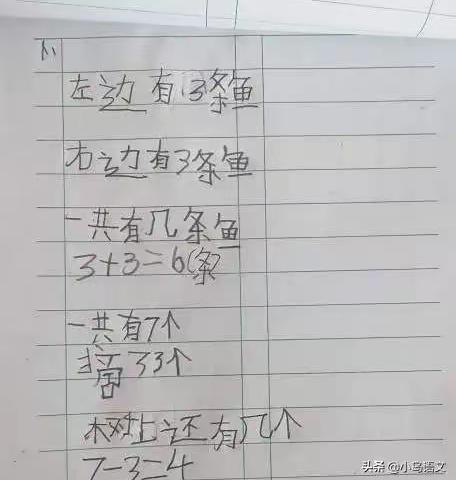 左边有3条鱼
右边有3条鱼
一共有几条鱼
3+3=6(条)
一共有7个
摘了3个
树上还有几个
7-3=4
头条 @小鸟语文